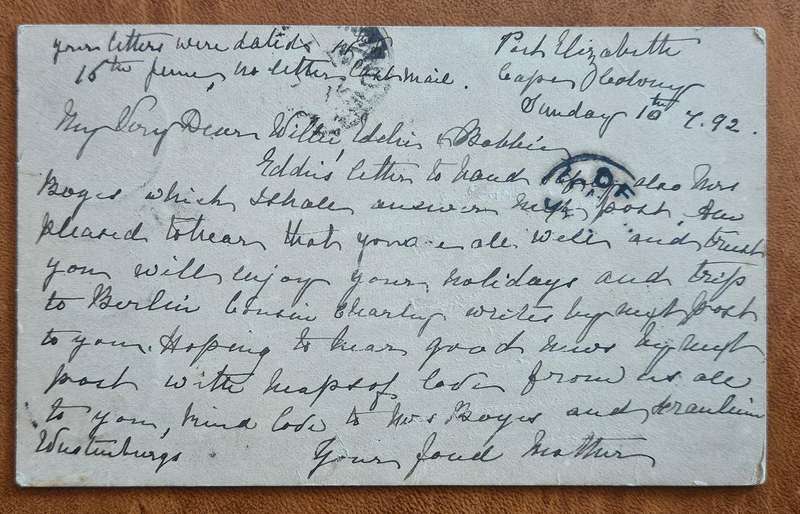 your letters were dated 15th
15th June, no letters last mail.
Port Elizabeth
Cape Colony
Sunday 10th 7.92.
My Very Dear Willie, Eddie & Bobbie
Eddie's letter to hand also Mrs
Boyes which I shall answer next post. Am
pleased to hear that you all well and trust
you will enjoy your holidays and trip
to Berlin Cousin Charley writes by next post
to you. Hoping to hear good news by next
post with heaps of love from us all
to you, kind love to Mrs Boyes and Fraulein
Wustenburgs Your fond Mother